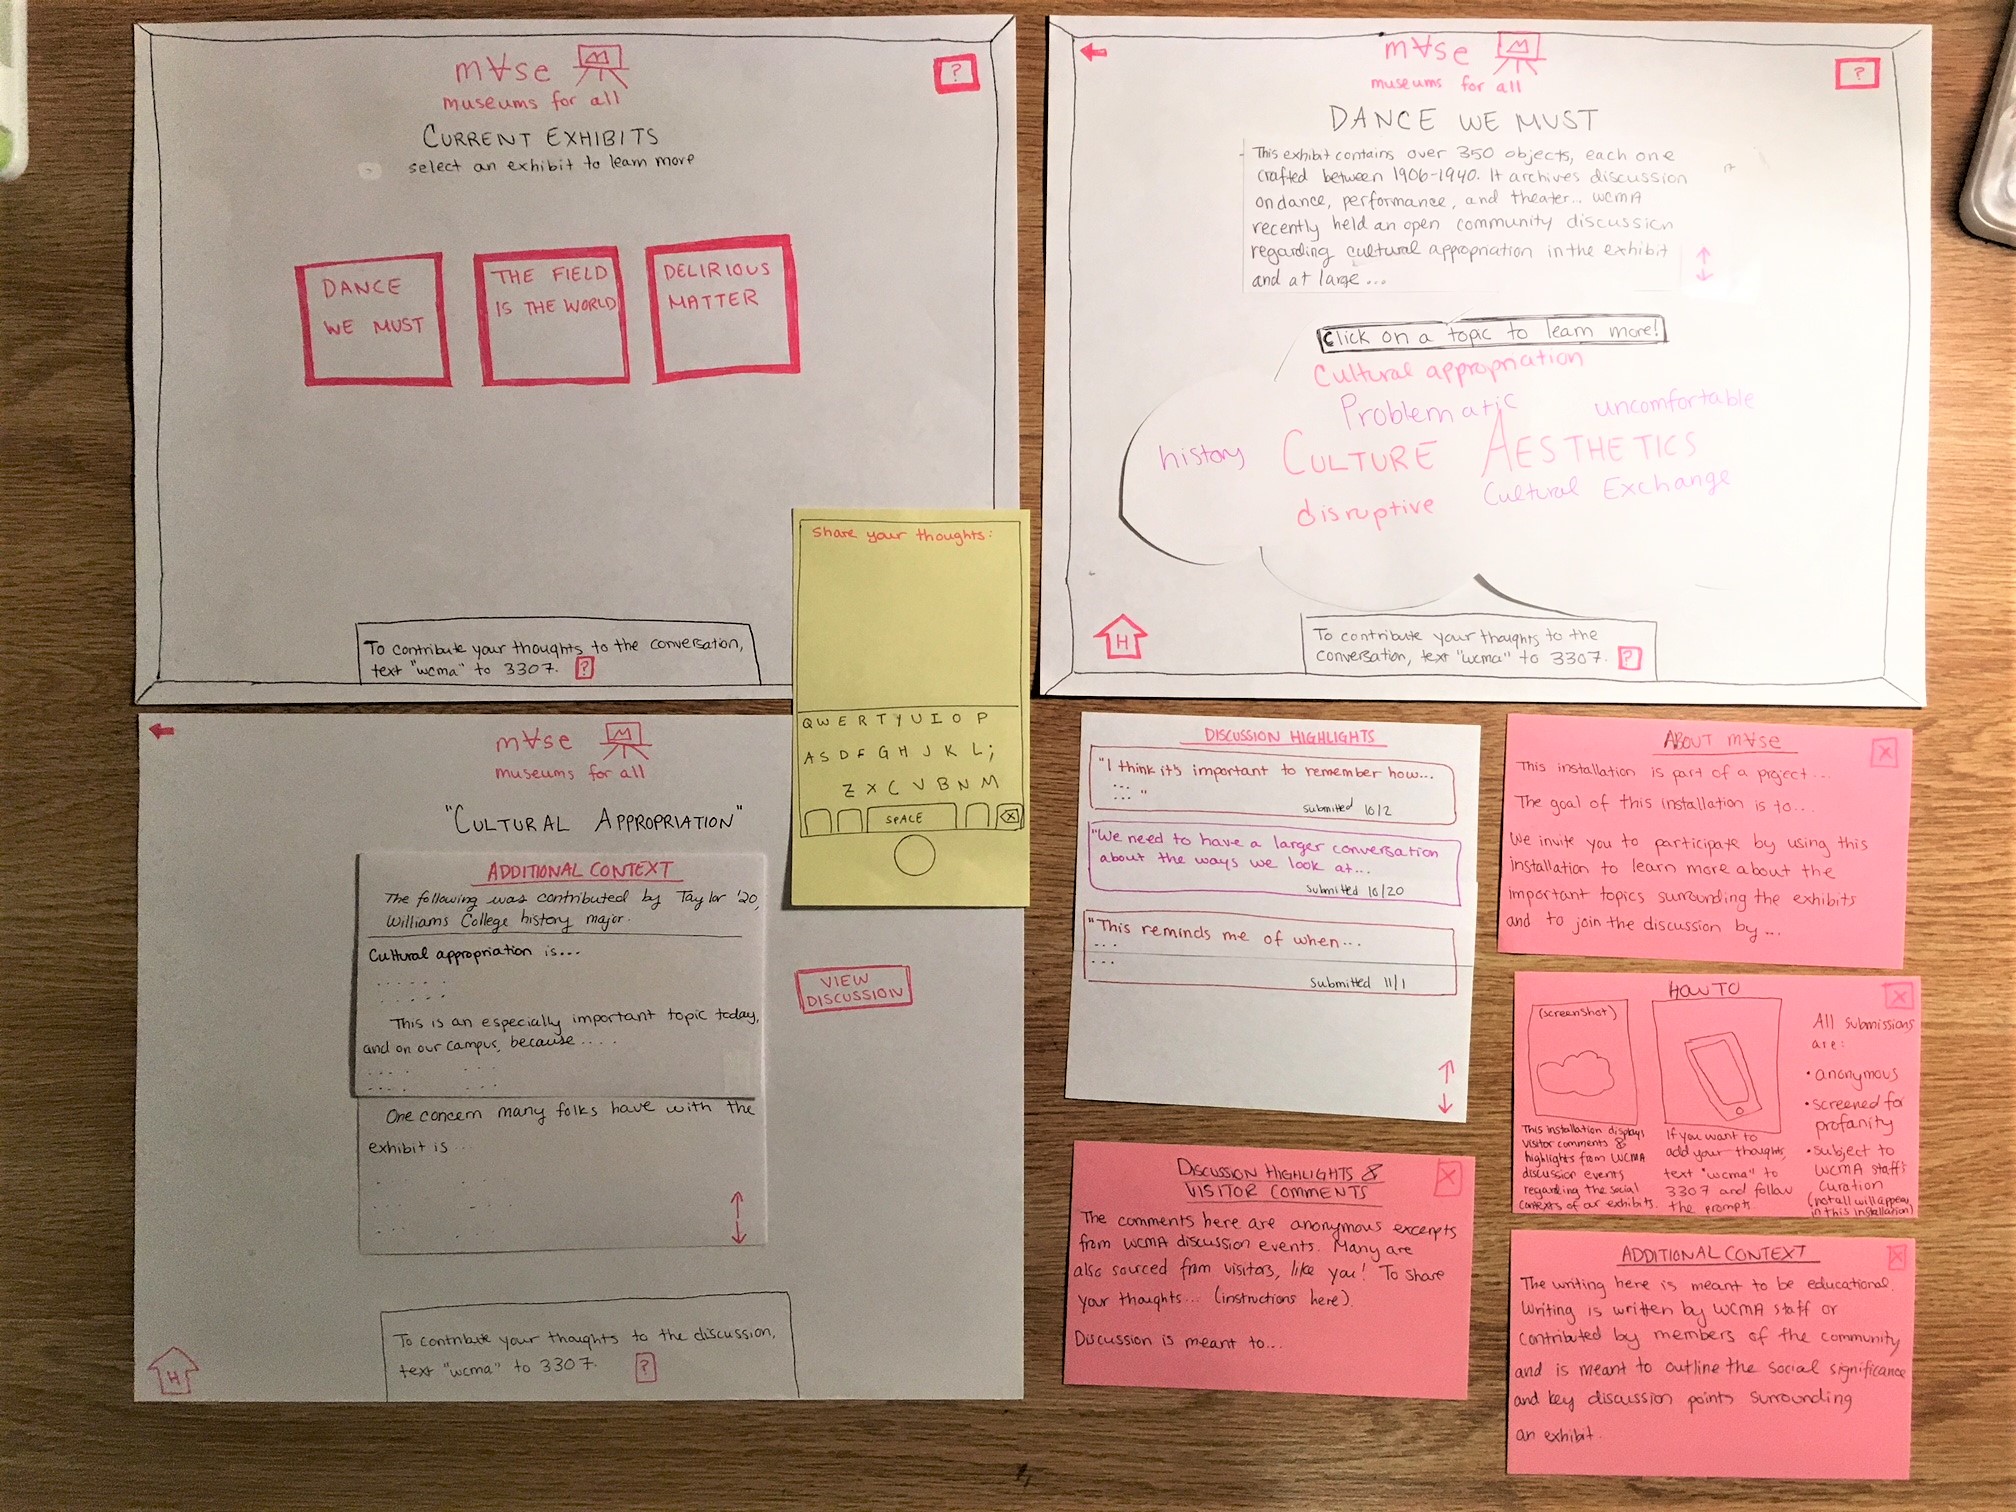 m∀se
museums for all
?
CURRENT EXHIBITS
select an exhibit to learn more
DANCE
WE MUST
THE FIELD
IS THE WORLD
DELIRIOUS
MATTER
To contribute your thoughts to the conversation,
text "wcma" to 3307. ?
m∀se
museums for all
?
DANCE WE MUST
This exhibit contains over 350 objects, each one
crafted between 1906-1940. It archives discussion
on dance, performance, and theater... WCMA
recently held an open community discussion
regarding cultural appropriation in the exhibit
and at large...
Click on a topic to learn more!
Cultural appropriation
Problematic
uncomfortable
history
CULTURE
AESTHETICS
disruptive
Cultural Exchange
H
To contribute your thoughts to the
conversation, text "wcma" to 3307. ?
Share your thoughts:
Q W E R T Y U I O P
A S D F G H J K L ;
Z X C V B N M
SPACE
X
m∀se
museums for all
"CULTURAL APPROPRIATION"
ADDITIONAL CONTEXT
The following was contributed by Taylor '20,
Williams College history major.
Cultural appropriation is...
. . . . . .
. . . . .
This is an especially important topic today,
and on our campus, because....
One concern many folks have with the
exhibit is
VIEW
DISCUSSION
H
To contribute your thoughts to the discussion,
text "wcma" to 3307. ?
DISCUSSION HIGHLIGHTS
"I think it's important to remember how...
...
... "
submitted 10/2
"We need to have a larger conversation
about the ways we look at...
submitted 10/20
"This reminds me of when...
...
...
submitted 11/1
ABOUT m∀se
X
This installation is part of a project...
The goal of this installation is to...
We invite you to participate by using this
installation to learn more about the
important topics surrounding the exhibits
and to join the discussion by...
HOW TO
X
(screenshot)
This installation displays
visitor comments &
highlights from WCMA
discussion events
regarding the social
contexts of our exhibits.
If you want to
add your thoughts,
text "wcma" to
3307 and follow
the prompts
All submissions
are:
• anonymous
• screened for
profanity
• subject to
WCMA staff's
curation
(not all will appear
in this installation)
DISCUSSION HIGHLIGHTS &
VISITOR COMMENTS
X
The comments here are anonymous excerpts
from WCMA discussion events. Many are
also sourced from visitors, like you! To share
your thoughts... (instructions here).
Discussion is meant to...
ADDITIONAL CONTEXT
X
The writing here is meant to be educational.
Writing is written by WCMA staff or
contributed by members of the community
and is meant to outline the social significance
and key discussion points surrounding
an exhibit.